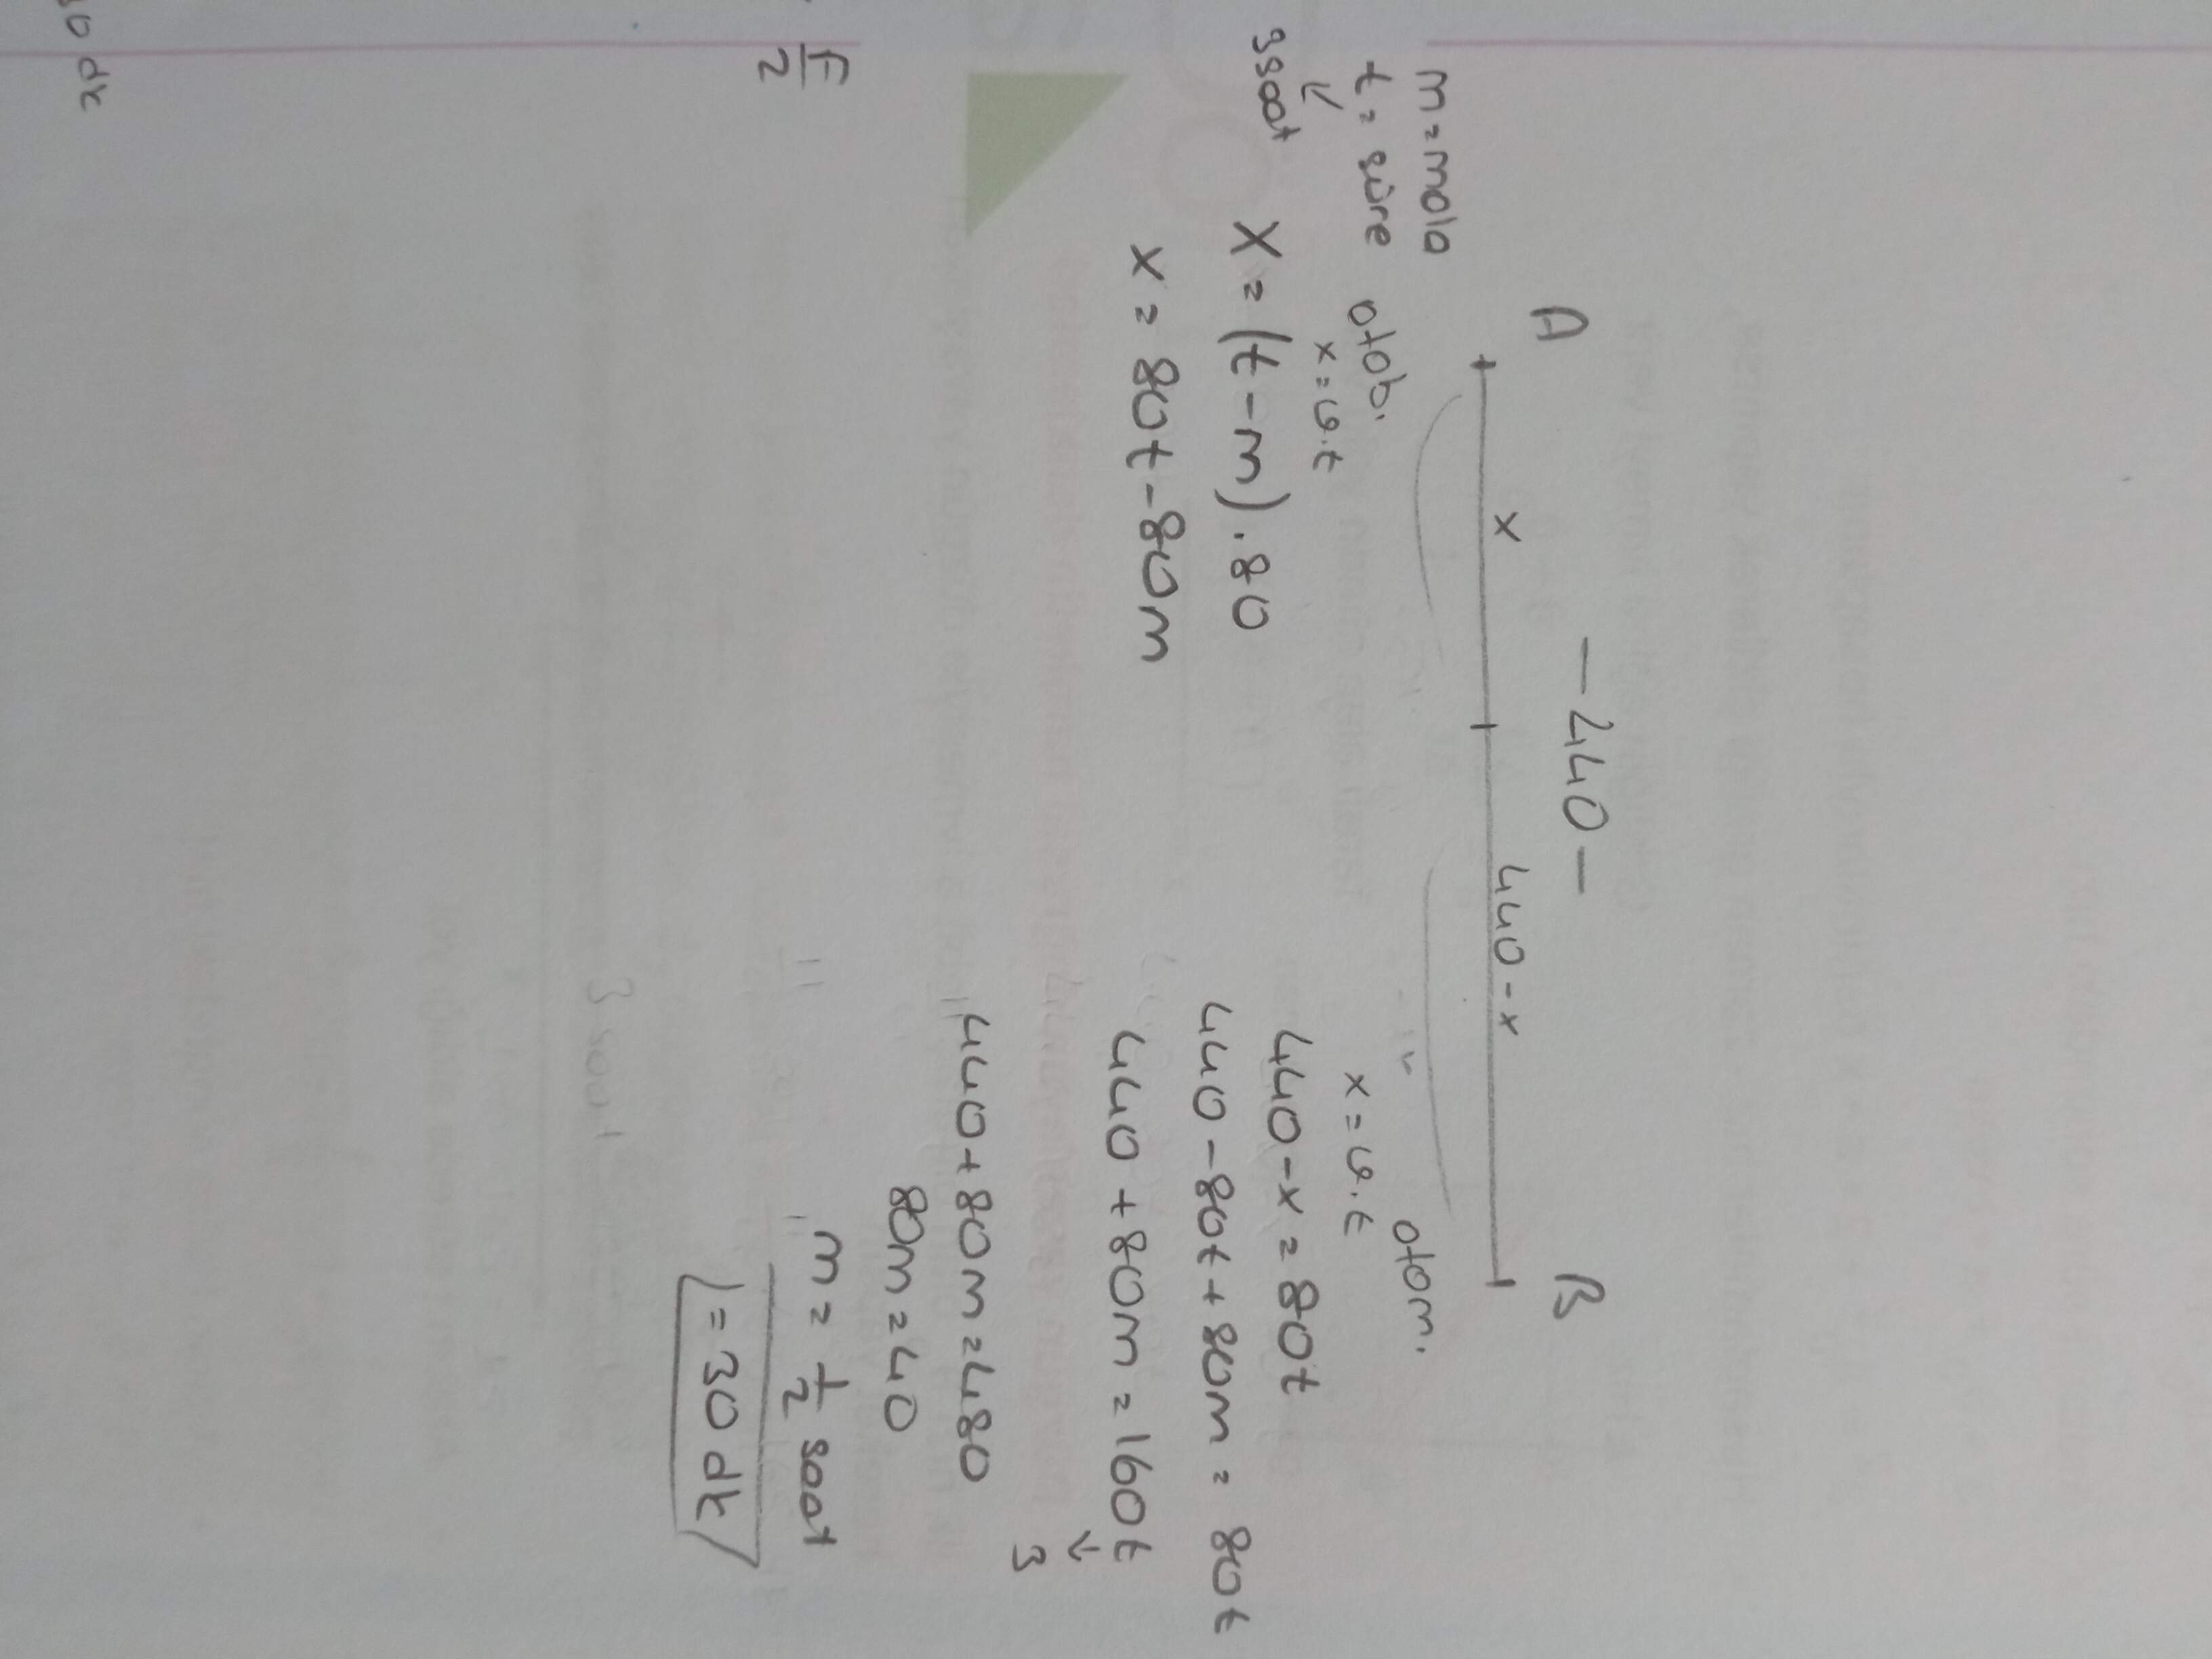 A -440- B
x 440-x
m=mola
t= süre
↓
3saat
otob.
x=v.t
X=(t-m).80
x=80t-80m
otom.
x=v.t
440-x=80t
440-80t+80m=80t
440+80m=160t
↓
3
440+80m=480
80m=40
m=1/2 saat
=30 dk
2
dk